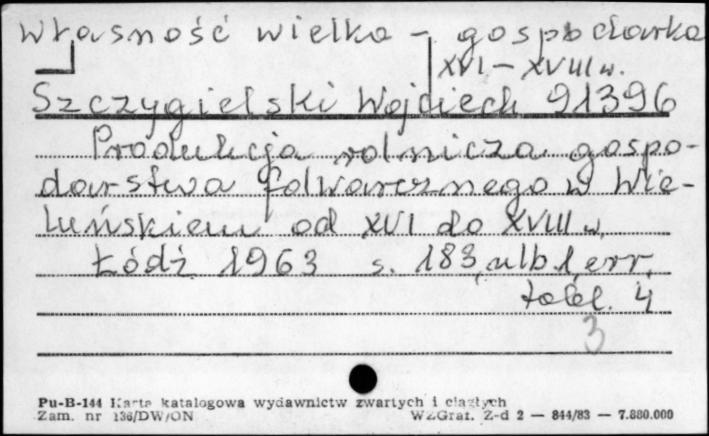 własność wielka – gospodarka
XVI – XVIII w.
Szczygielski Wojciech 91396
Produkcja rolnicza gospo-
darstwa folwarcznego w Wie-
luńskiem od XVI do XVIII w.
Łódź 1963 s. 183, nlb 1, err.
tabl. 4
3
Pu-B-144 Karta katalogowa wydawnictw zwartych i ciągłych
Zam. nr 136/DW/ON WZGraf. Z-d 2 — 844/83 — 7.880.000